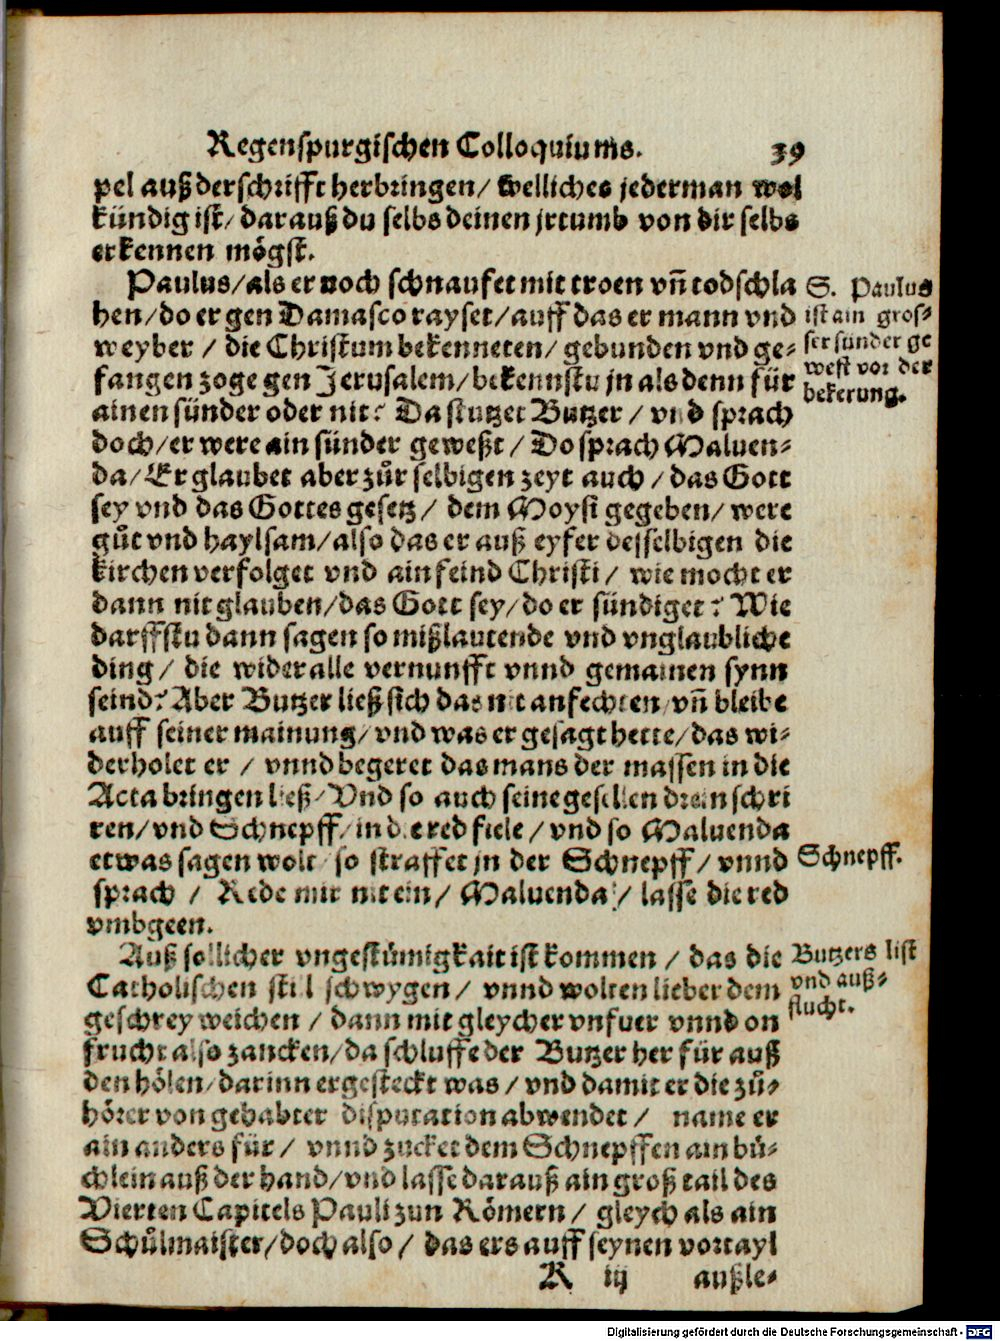 Regenspurgischen Colloquiums. 39
pel auß der schrifft herbringen/ welliches jederman wol
kündig ist/ darauß du selbs deinen jrtumb von dir selbs
erkennen mögst.
Paulus/ als er noch schnaufet mit troen vñ todschla
hen/ do er gen Damasco rayset/ auff das er mann vnd
weyber / die Christum bekenneten/ gebunden vnd ge-
fangen zoge gen Jerusalem/ bekennstu jn als denn für
ainen sünder oder nit? Da stutzet Butzer / vnd sprach
doch/ er were ain sünder geweßt / Do sprach Maluen-
da/ Er glaubet aber zůr selbigen zeyt auch / das Gott
sey vnd das Gottes gesetz / dem Moysi gegeben/ were
gůt vnd haylsam/ also das er auß eyfer desselbigen die
kirchen verfolget vnd ain feind Christi / wie mocht er
dann nit glauben/ das Gott sey/ do er sündiget? Wie
darffstu dann sagen so mißlautende vnd vnglaubliche
ding / die wider alle vernunfft vnnd gemainen synn
seind? Aber Butzer ließ sich das nit anfechten/ vñ bleibe
auff seiner mainung/ vnd was er gesagt hette/ das wi-
derholet er / vnnd begeret das mans der massen in die
Acta bringen ließ/ Vnd so auch seine gesellen drein schri
ren/ vnd Schnepff/ in die red fiele / vnd so Maluenda
etwas sagen wolt/ so straffet jn der Schnepff / vnnd
sprach / Rede mir nit ein/ Maluenda / lasse die red
vmbgeen.
Auß sollicher vngestümigkait ist kommen / das die
Catholischen still schwygen / vnnd wolten lieber dem
geschrey weichen / dann mit gleycher vnfuer vnnd on
frucht also zancken/ da schluffe der Butzer her für auß
den hölen/ darinn er gesteckt was / vnd damit er die zů-
hörer von gehabter disputation abwendet / name er
ain anders für / vnnd zucket dem Schnepffen ain bů-
chlein auß der hand/ vnd lasse darauß ain groß tail des
Vierten Capitels Pauli zun Römern / gleych als ain
Schůlmaister/ doch also / das ers auff seynen vortayl
K iij außle-
S. Paulus
ist ain gros-
ser sünder ge
west vor der
bekerung.
Schnepff.
Butzers list
vnd auß-
flucht.
Digitalisierung gefördert durch die Deutsche Forschungsgemeinschaft - DFG